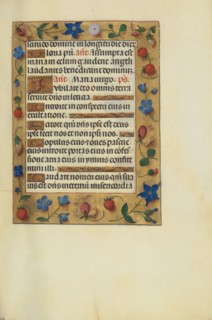 secutio domine in longitudine dier
bona pm̄ añt. Assumpta est
maria in celum gaudent angeli
laudantes benedicunt dominum.
añt. Maria uirgo. ps̄
Iubilate deo omnis terra
seruite dn̄o in leticia.
Introite in conspectu eius in
exultatione.
Scitote qm̄ dn̄s ipse est deus
ipse fecit nos et non ipsi nos.
Populus eius et oues pascue
eius introite portas eius in cōfes
sione atria eius in ymnis confite
mini illi.
Laudate nomen eius qm̄ sua
uis est dn̄s in eternū misericordia